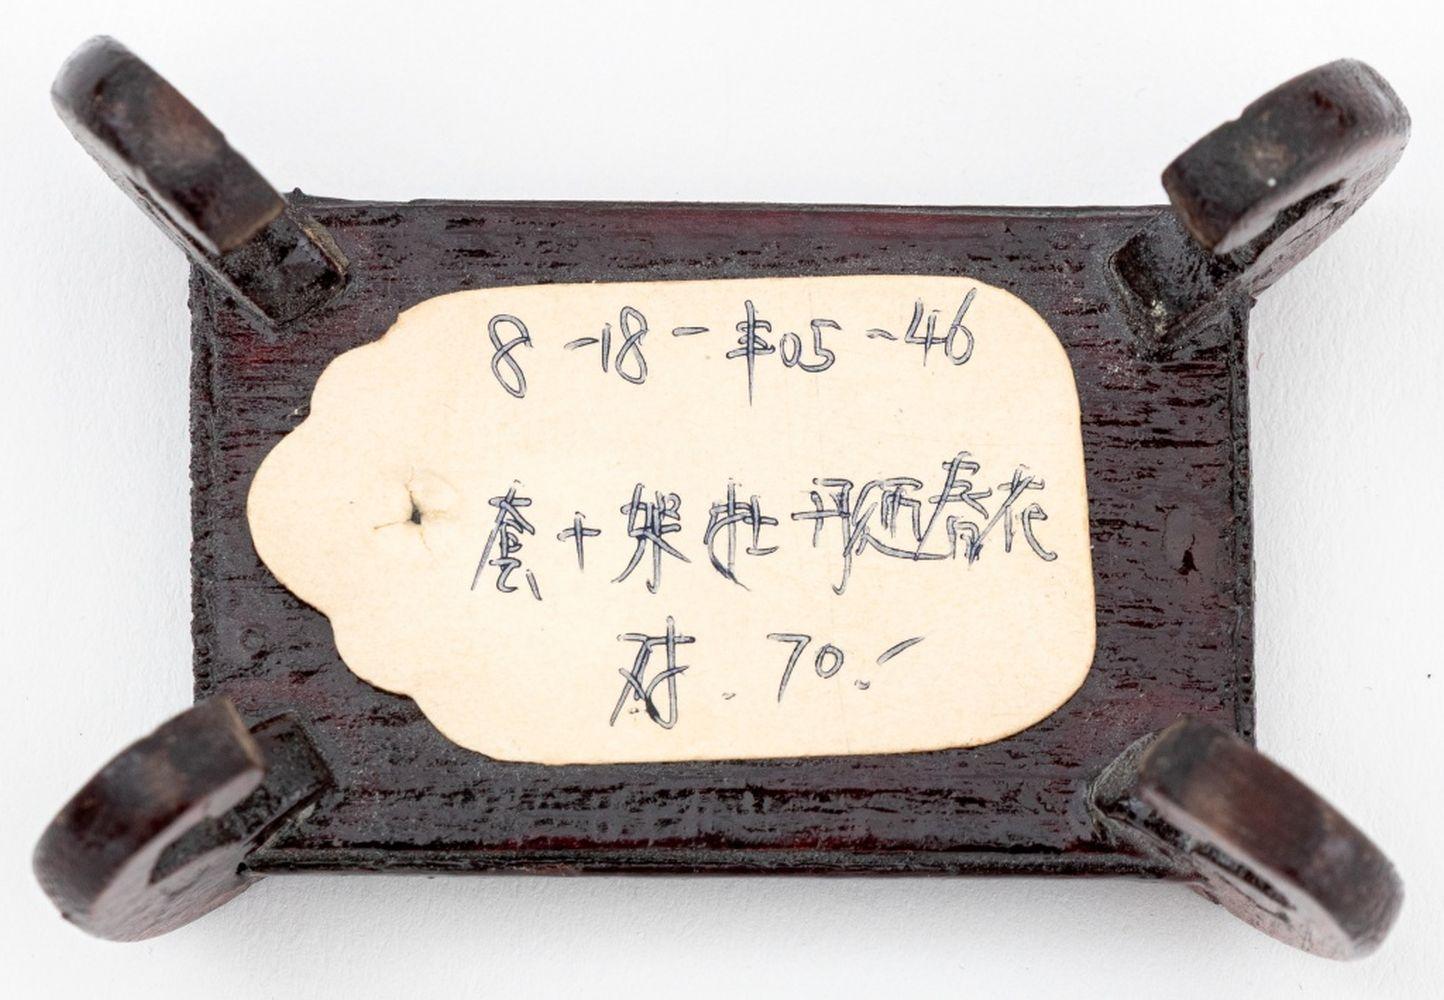 8-18-丰05-46
套十架牡丹迎春花
对. 70.-